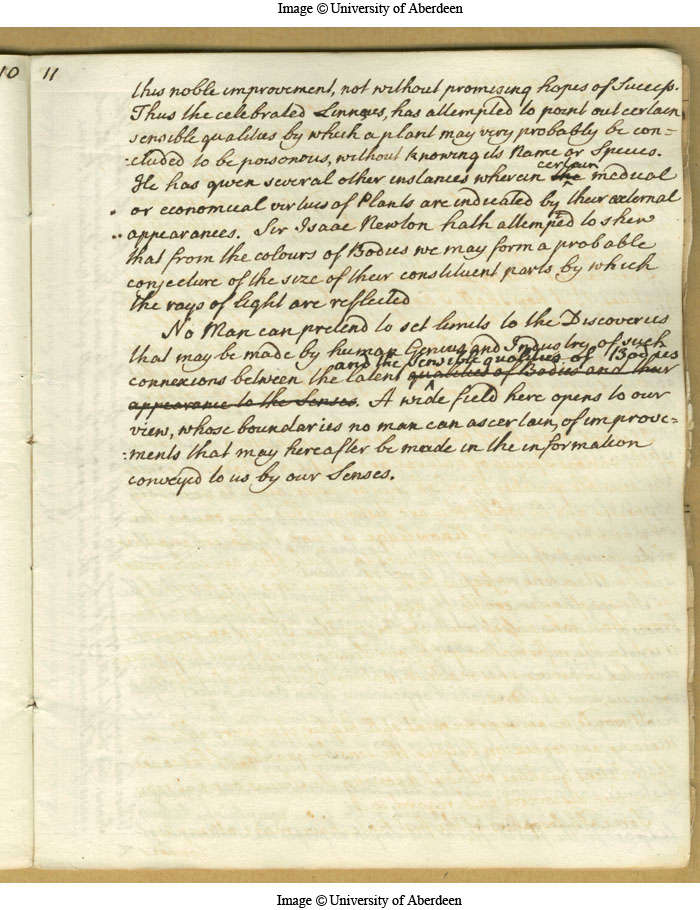 Image © University of Aberdeen
10 11
this noble improvement, not without promising hopes of Success.
Thus the celebrated Linneus, has attempted to point out certain
sensible qualities by which a plant may very probably be con=
:cluded to be poisonous, without knowing its Name or Species.
certain
He has given several other instances wherein the medical
or economical virtues of Plants are indicated by their external
appearances. Sir Isaac Newton hath attempted to shew
that from the colours of Bodies we may form a probable
conjecture of the size of their constituent parts by which
the rays of light are reflected
No Man can pretend to set limits to the Discoveries
that may be made by human Genius and Industry of such
and the sensible qualities of Bodies
connexions between the latent qualities of Bodies and their
appearance to the Senses. A wide field here opens to our
view, whose boundaries no man can ascertain, of improve=
:ments that may hereafter be made in the information
conveyed to us by our Senses.
Image © University of Aberdeen